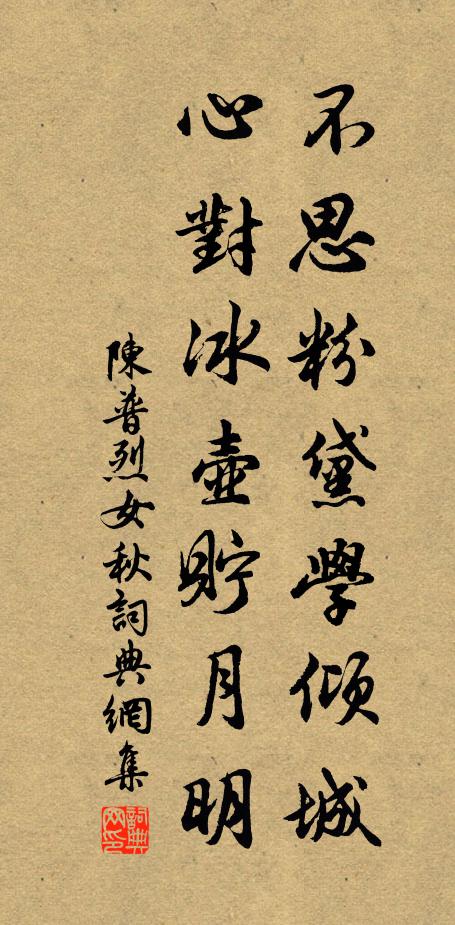 不思粉黛學傾城
心對冰壺貯月明
陳普烈女秋詞典網集
詞典網印